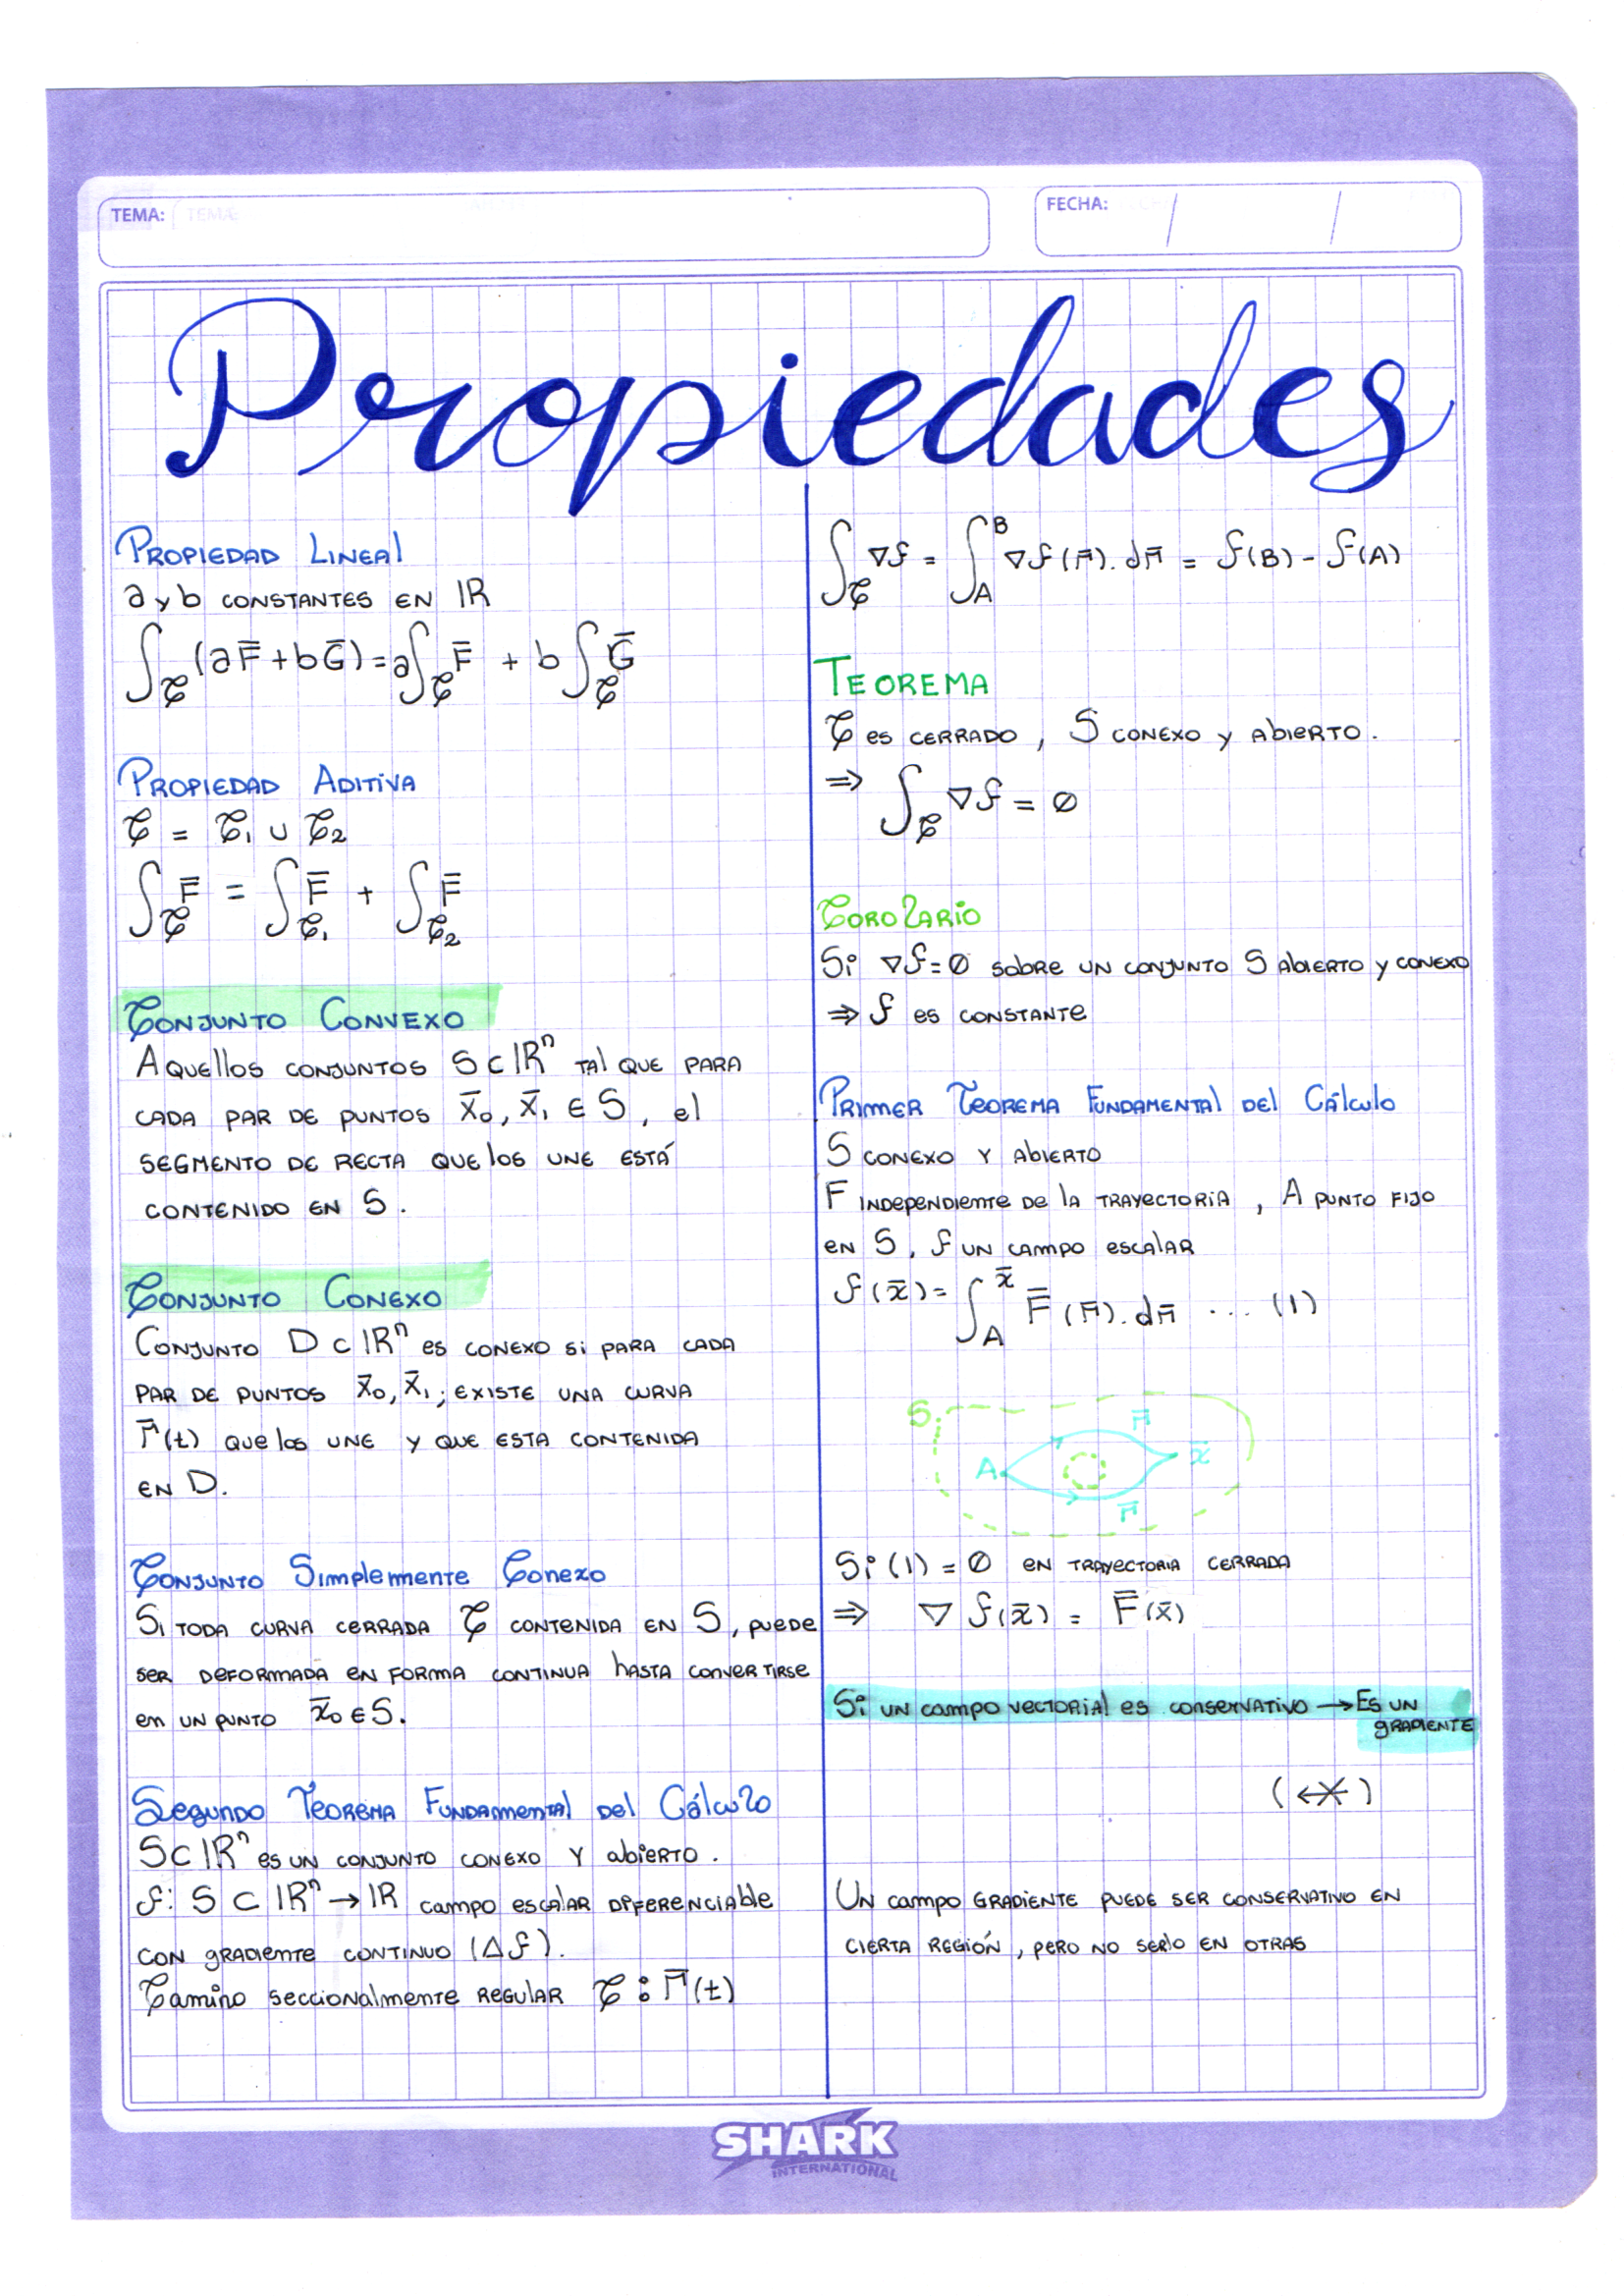 TEMA:
FECHA: / /
Propiedades
Propiedad Lineal
a y b constantes en IR
∫𝒞 (aF̄ + bḠ) = a∫𝒞 F̄ + b∫𝒞 Ḡ
Propiedad Aditiva
𝒞 = 𝒞₁ ∪ 𝒞₂
∫𝒞 F̄ = ∫𝒞₁ F̄ + ∫𝒞₂ F̄
Conjunto Convexo
Aquellos conjuntos S ⊂ IRⁿ tal que para
cada par de puntos x̄₀, x̄₁ ∈ S, el
segmento de recta que los une está
contenido en S.
Conjunto Conexo
Conjunto D ⊂ IRⁿ es conexo si para cada
par de puntos x̄₀, x̄₁; existe una curva
r̄(t) que los une y que esta contenida
en D.
Conjunto Simplemente Conexo
Si toda curva cerrada 𝒞 contenida en S, puede
ser deformada en forma continua hasta convertirse
en un punto x̄₀ ∈ S.
Segundo Teorema Fundamental del Cálculo
S ⊂ IRⁿ es un conjunto conexo y abierto.
f: S ⊂ IRⁿ → IR campo escalar diferenciable
con gradiente continuo (Δf).
Camino seccionalmente regular 𝒞 : r̄(t)
∫𝒞 ∇f = ∫_A^B ∇f(r̄). dr̄ = f(B) - f(A)
Teorema
𝒞 es cerrado, S conexo y abierto.
⇒ ∫𝒞 ∇f = 0
Corolario
Si ∇f = 0 sobre un conjunto S abierto y conexo
⇒ f es constante
Primer Teorema Fundamental del Cálculo
S conexo y abierto
F independiente de la trayectoria, A punto fijo
en S, f un campo escalar
f(x̄) = ∫_A^x̄ F̄(r̄). dr̄ ... (1)
S r̄
A x̄
r̄
Si (1) = 0 en trayectoria cerrada
⇒ ∇f(x̄) = F̄(x̄)
Si un campo vectorial es conservativo → Es un
gradiente
(↚)
Un campo gradiente puede ser conservativo en
cierta región, pero no serlo en otras
SHARK
INTERNATIONAL